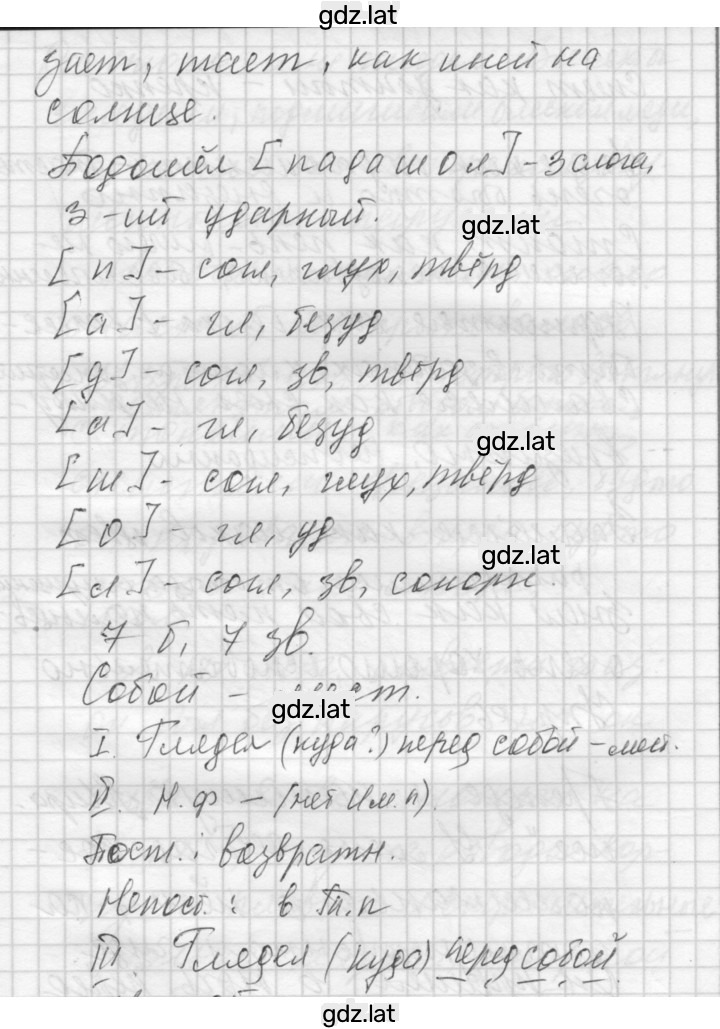 gdz.lat
зает, тает, как иней на
солнце.
Подошёл [падашол] - 3 слога,
3-ий ударный.
gdz.lat
[п] - согл, глух, твёрд
[а] - гл, безуд
[д] - согл, зв, твёрд
[а] - гл, безуд
gdz.lat
[ш] - согл, глух, твёрд
[о] - гл, уд
gdz.lat
[л] - согл, зв, сонорн.
7 б, 7 зв.
Собой -
gdz.lat
I. Глядел (куда?) перед собой - мест.
II. Н.ф - (нет Им.п).
Пост.: возвратн.
Непост.: в Тв.п
III. Глядел (куда) перед собой.
gdz.lat